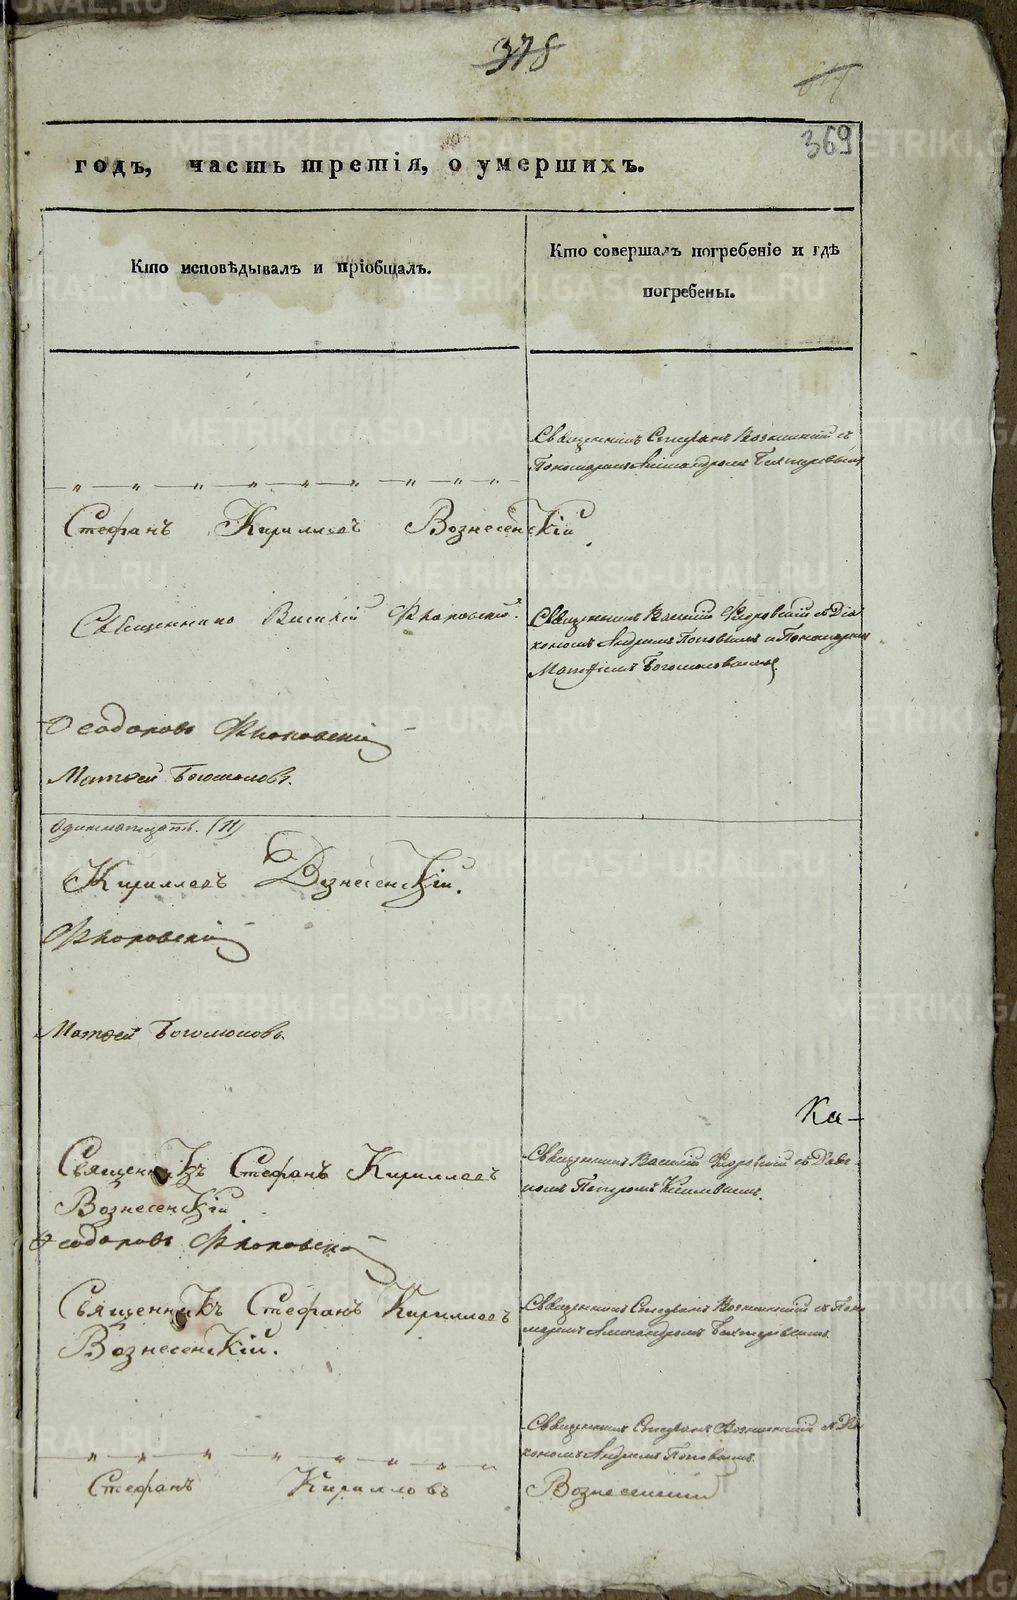 378
369
годъ, часть третія, о умершихъ.
Кто исповѣдывалъ и пріобщалъ.
Кто совершалъ погребеніе и гдѣ
погребены.
Священникъ Стефанъ Вознесенский съ
Пономаремъ Александромъ
Стефанъ Кирилловъ Вознесенскій.
Священникъ Василій Флоровскій.
Священникъ Василій Флоровскій съ Діа
кономъ Андреемъ Поповымъ и Пономаремъ
Матфіемъ Богомоловымъ.
Феодоровъ Флоровскій
Матвей Богомоловъ.
одиннатцать. (11)
Кирилловъ Вознесенскій.
Флоровскій
Матвей Богомоловъ.
Ка-
Священникъ Стефанъ Кирилловъ
Вознесенскій
Священникъ Василій Флоровскій съ
Петромъ
Феодоровъ Флоровскій
Священникъ Стефанъ Кирилловъ
Вознесенскій.
Священникъ Стефанъ Вознесенский съ Поно
маремъ Александромъ
Священникъ Стефанъ Вознесенский съ Діа
кономъ Андреемъ Поповымъ.
Стефанъ Кирилловъ Вознесенский
METRIKI.GASO-URAL.RU